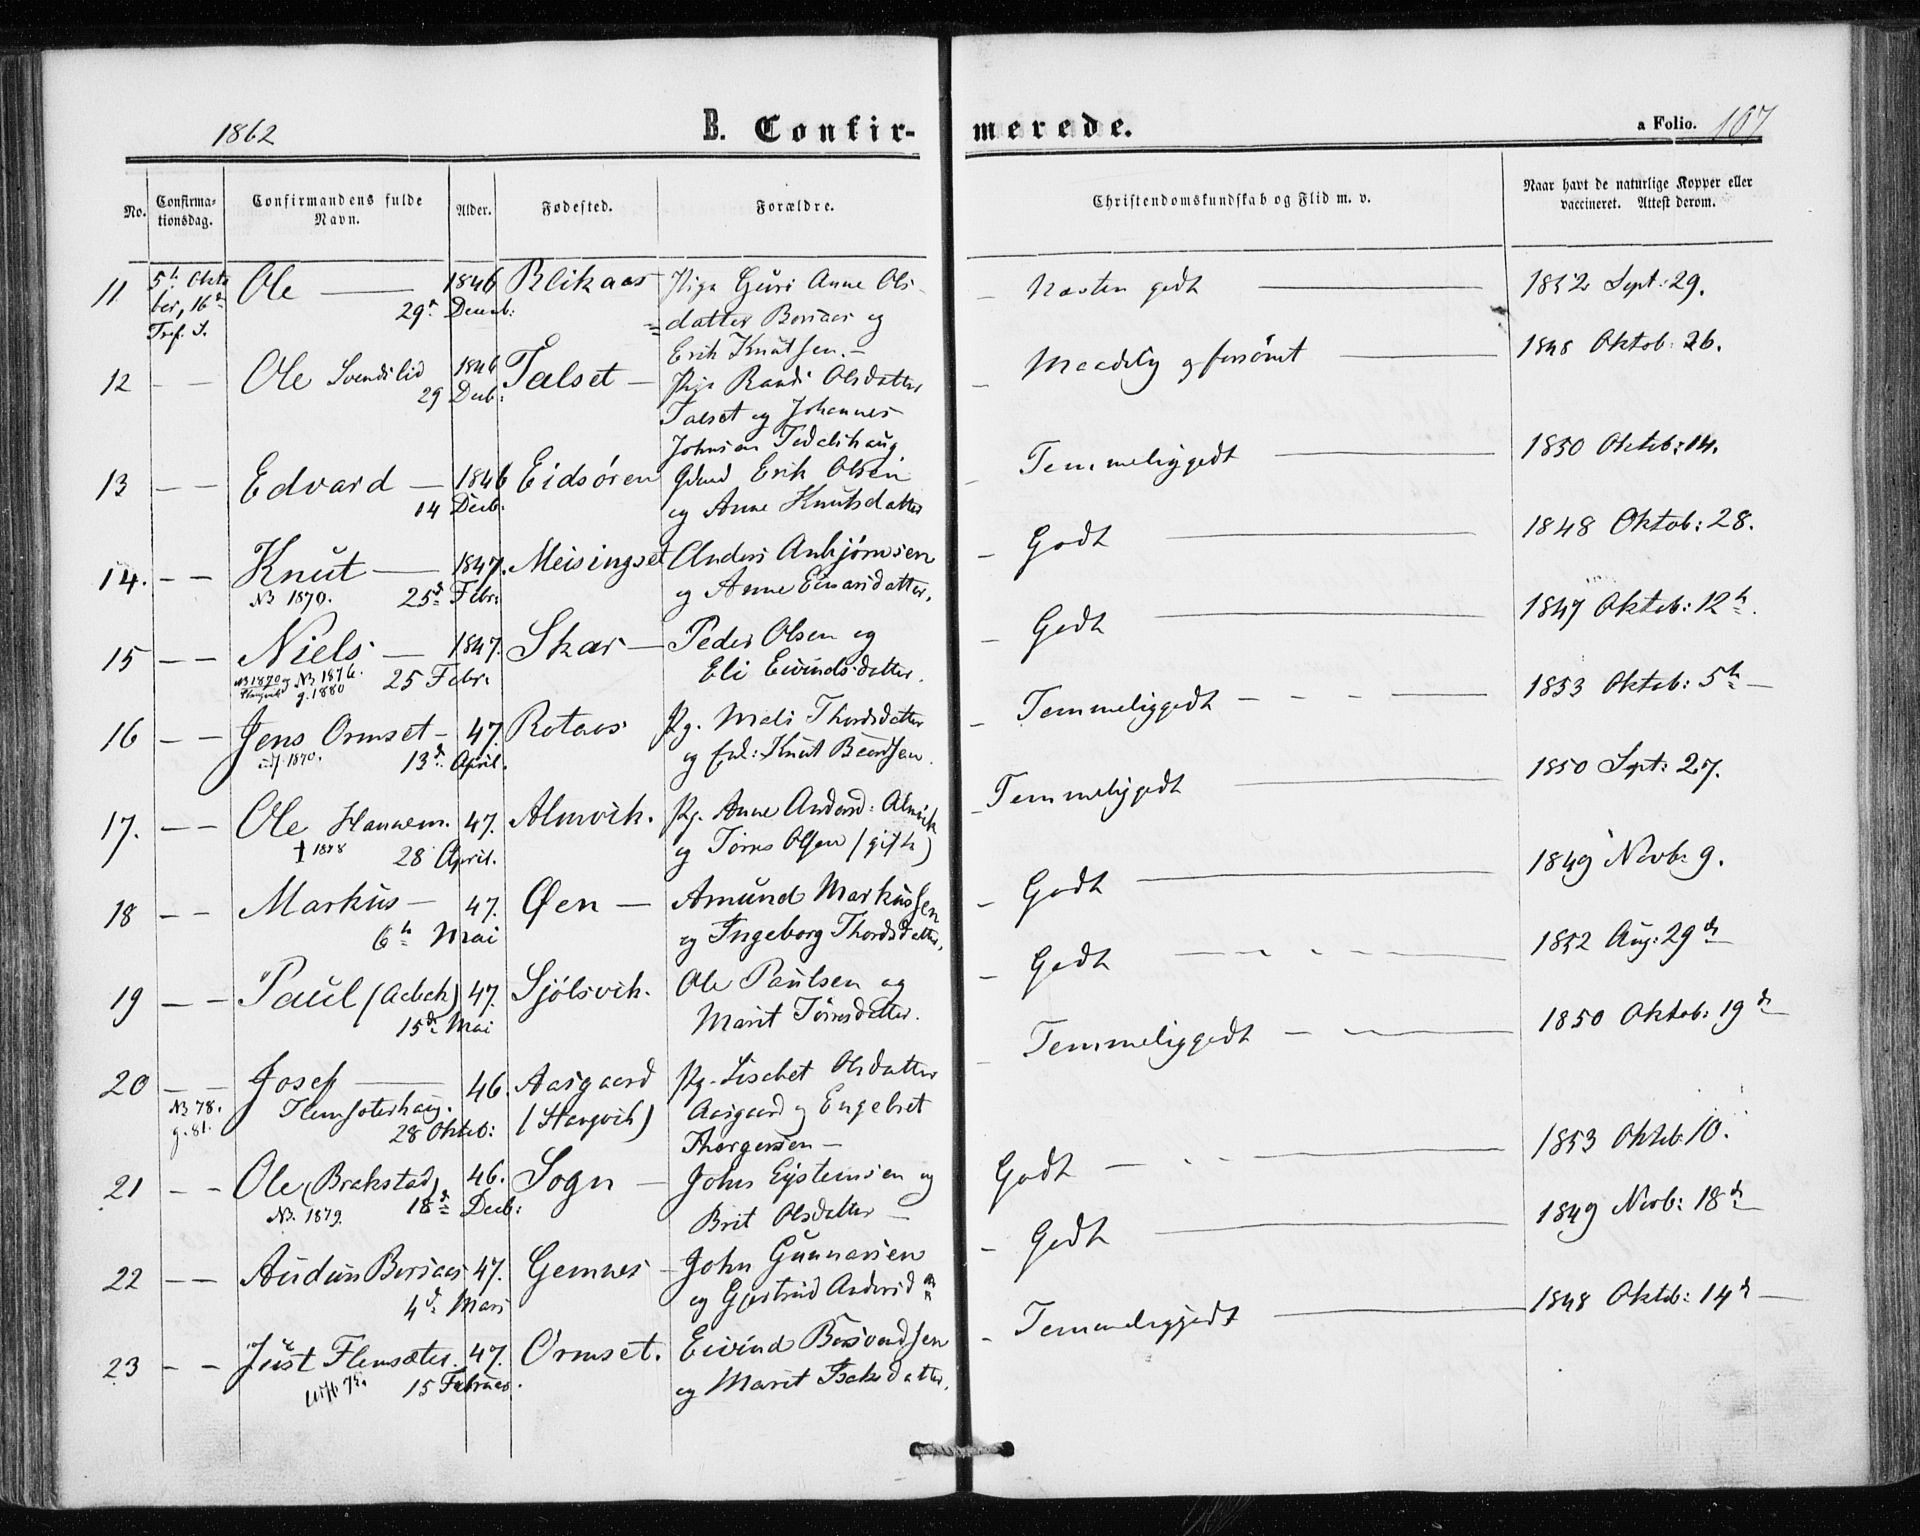 1862 B. Confir- merede. a Folio. 107
No. Confirma-tionsdag. Confirmandens fulde Navn. Alder. Fødested. Forældre. Christendomskundskab og Flid m. v. Naar havt de naturlige Kopper eller vaccineret. Attest derom.
11 5t Okto Ole — 1846 Blikaas Piga Guri Anne Ols- – Næsten godt — 1852 Sept: 29.
ber, 16d 29d Decemb: datter Boraas og
Tref. S. Erik Knutsen. –
12 – – Ole Svendslid 1846 Talset – Pige Randi Olsdatter – Maadelig og forsømt — 1848 Oktob: 26.
29 Decb: Talset og Johannes
Johnsen Tedalshaug
13 – – Edvard – 1846 Eidsøren Gdmd Erik Olsen – Temmeliggodt — 1850 Oktob: 14.
14 Decb. og Anne Knutsdatter
14. – – Knut — 1847. Meisingset Anders Anbjørnsen – Godt — 1848 Oktob: 28.
NB 1870. 25d Febr: og Anne Einarsdatter.
15 – – Niels – 1847. Skar – Peder Olsen og – Godt — 1847 Oktob: 12t.
NB 1870 og NB 1876. 25 Febr: Eli Eivindsdatter.
g. 1880
16 – – Jens Ormset – 47. Rotaas Pg. Mali Thordsdatter – Temmeliggodt – – – — 1853 Oktob: 5t –
1870. 13d April. og Knut Beardsen.
17. – – Ole Hannem. 47. Almvik. Pg. Anne Andersd: Almvik – Temmeliggodt — 1850 Sept: 27.
† 1878 28 April. og Tørres Olsen (gift)
18 – – Markus – 47. Øen – Amund Markussen – Godt — 1849 Novb: 9.
6t Mai og Ingeborg Thordsdatter.
19 – – Paul 47. Sjølsvik. Ole Paulsen og – Godt — 1852 Aug: 29d
15d Mai Marit Tørresdatter.
20 – – Josef — 46. Aasgaard Pg. Lisabet Olsdatter – Temmeliggodt – – — 1850 Oktob: 19d
NB 78. Flemsæterhaug. (Stangvik) Aasgaard og Engelset
g. 81. 28 Oktob: Thorgersen –
21 – – Ole (Brakstad) 46. Sogn – John Eysteinsen og Godt — 1853 Oktob 10.
NB. 1879. 18d Decb: Brit Olsdatter –
22 – – Audun Boraas 47. Gemnes – John Gunnarsen – Godt — 1849 Novb: 18d
4d Mars og Gjertrud Andersd
23 – – Just Flemsæter. 47. Ormset. Eivind Baardsen – Temmeliggodt — 1848 Oktob: 14d –
15 Februar. og Marit Isaksdatter.